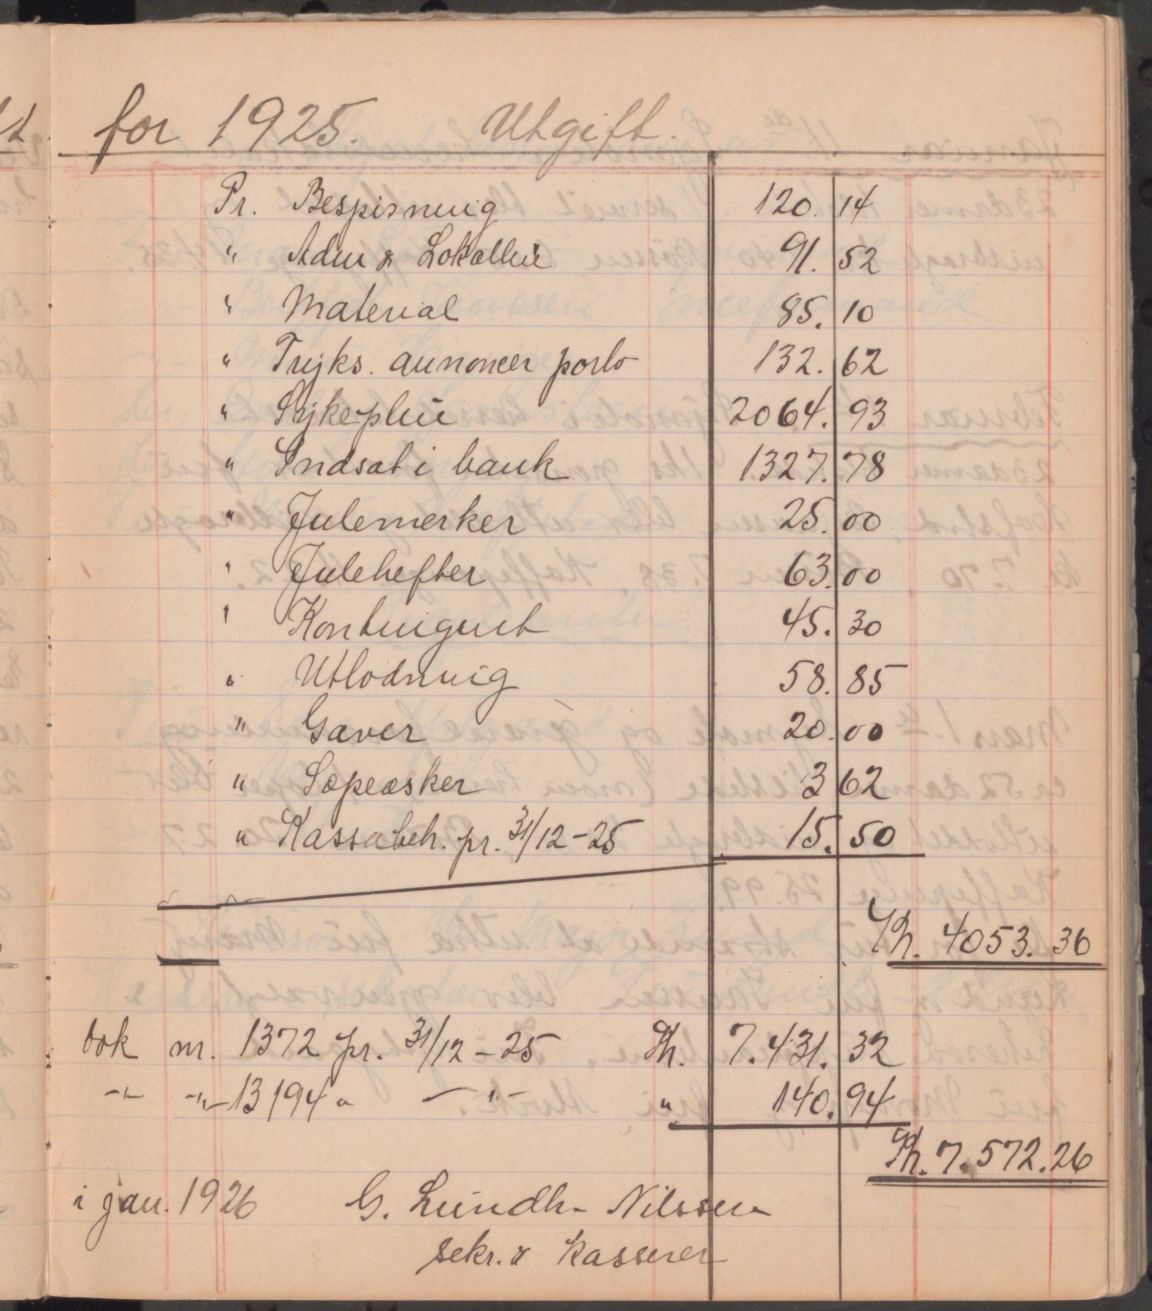 for 1925. Utgift.
Pr. Bespisning 120. 14
" Adm & Lokalleie 91. 52
" Material 85. 10
" Tryks. annoncer porto 132. 62
" Sykepleie 2064. 93
" Indsat i bank 1327. 78
" Julemerker 25. 00
" Julehefter 63. 00
" Kontingent 45. 30
" Utlodning 58. 85
" Gaver 20. 00
" Sopeasker 3 62
" Kassabeh. pr. 31/12-25 15. 50
Kr. 4053. 36
bok nr. 1372 pr. 31/12-25 Kr. 7.431. 32
-"- -"- 13194 " -"- " 140. 94
Kr. 7.572.26
i jan. 1926 G. Lundh-Nilssen
sekr. & kasserer